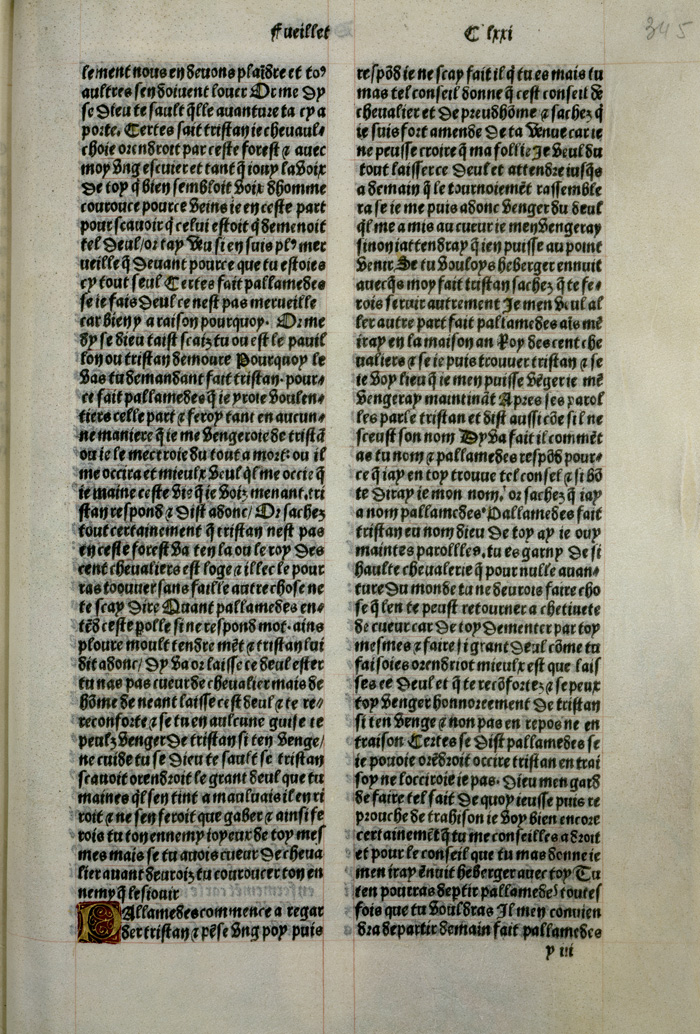 Fueillet C lxxi
345
lement nous en deuons plaīdre et to⁹
aultres sen doiuent louer Or me dy
se dieu te sault q̄lle auanture ta cy a
porte. Certes fait tristan ie cheuaul⸗
choie orendroit par ceste forest ⁊ auec
moy vng escuier et tant q̄ iouy la voix
de toy q̄ bien sembloit voix dhomme
courouce pource veins ie en ceste part
pour scauoir q̄ celui estoit q̄ demenoit
tel deul/or tay veu si en suis pl⁹ mer
ueille q̄ deuant pource que tu estoies
cy tout seul Certes fait pallamedes
se ie fais deul ce nest pas merueille
car bien y a raison pourquoy. Or me
dy se dieu taist scaiz tu ou est le pauil
lon ou tristan demoure Pourquoy le
vas tu demandant fait tristan. pour⸗
ce fait pallamedes q̄ ie yroie voulen⸗
tiers celle part ⁊ feroy tant en aucun⸗
ne maniere q̄ ie me vengeroie de tristā
ou ie le mectroie du tout a mort: ou il
me occira et mieulx veul q̄l me occie q̄
ie maine ceste vie q̄ ie voiz menant. tri
stan respond ⁊ dist adonc/ Or sachez
tout certainement q̄ tristan nest pas
en ceste forest va ten la ou le roy des
cent cheualiers est loge ⁊ illec le pour
ras toouuer sans faille autre chose ne
te scay dire Quant pallamedes en⸗
tēd ceste polle si ne respond mot. ains
ploure moult tendre mēt ⁊ tristan lui
dit adonc/ dy va or laisse ce deul ester
tu nas pas cueur de cheualier mais de
hōme de neant laisse cest deul ⁊ te re⸗
reconforte ⁊ se tu en aulcune guise te
peulz venger de tristan si ten venge/
ne cuide tu se dieu te sault se tristan
scauoit orendroit le grant deul que tu
maines q̄l sen tint a mauluais il en ri
roit ⁊ ne sen feroit que gaber ⁊ ainsi fe
rois tu ton ennemy ioyeux de toy mes
mes mais se tu auois cueur de cheua
lier auant deuroiz tu couroucer ton en
nemy q̄ lesiouir
PAllamedes commence a regar
der tristan ⁊ pēse vng poy puis
respōd ie ne scay fait il q̄ tu es mais tu
mas tel conseil donne q̄ cest conseil de
cheualier et de preudhōme ⁊ sachez q̄
ie suis fort amende de ta venue car ie
ne peusse croire q̄ ma follie Je veul du
tout laisser ce deul et attendre iusq̄s
a demain q̄ le tournoiemēt rassemble
ra se ie me puis adonc venger du deul
q̄l me a mis au cueur ie men vengeray
sinon iattendray q̄ ien puisse au point
venir. Se tu vouloys heberger ennuit
auecq̄s moy fait tristan sachez q̄ te fe⸗
rois seruir autrement Je men veul al
ler autre part fait pallamedes aīs mē
iray en la maison an Roy des cent che
ualiers ⁊ se ie puis trouuer tristan ⁊ se
ie voy lieu q̄ ie men puisse vēger ie mē
vengeray maintināt Apres ses parol
les parle tristan et dist aussi cōe sil ne
sceust son nom Dy va fait il commēt
as tu nom ⁊ pallamedes respōd pour⸗
ce q̄ iay en toy trouue tel conseil ⁊ si bō
te diray ie mon nom, or sachez q̄ iay
a nom pallamedes. Pallamedes fait
tristan eu nom dieu de toy ay ie ouy
maintes parollles. tu es garny de si
haulte cheualerie q̄ pour nulle auan⸗
ture du monde tu ne deurois faire cho
se q̄ len te peust retourner a chetiuete
de cueur car de toy dementer par toy
mesmes ⁊ faire si grant deul cōme tu
faisoies orendriot mieulx est que lais
ses ce deul et q̄ te recōfortez ⁊ se peux
toy venger honnoreement de tristan
si ten venge ⁊ non pas en repos ne en
traison Certes se dist pallamedes se
ie pouoie orēdroit occire tristan en trai
son ne locciroie ie pas. dieu men gard
de faire tel fait de quoy ieusse puis re
prouche de trahison ie voy bien encore
certainemēt q̄ tu me conseilles a droit
et pour le conseil que tu mas donne ie
men iray ēnuit heberger auec toy Tu
ten pourras deptir pallamedes toutes
fois que tu vouldras Il men conuien
dra departir demain fait pallamedes
p iii